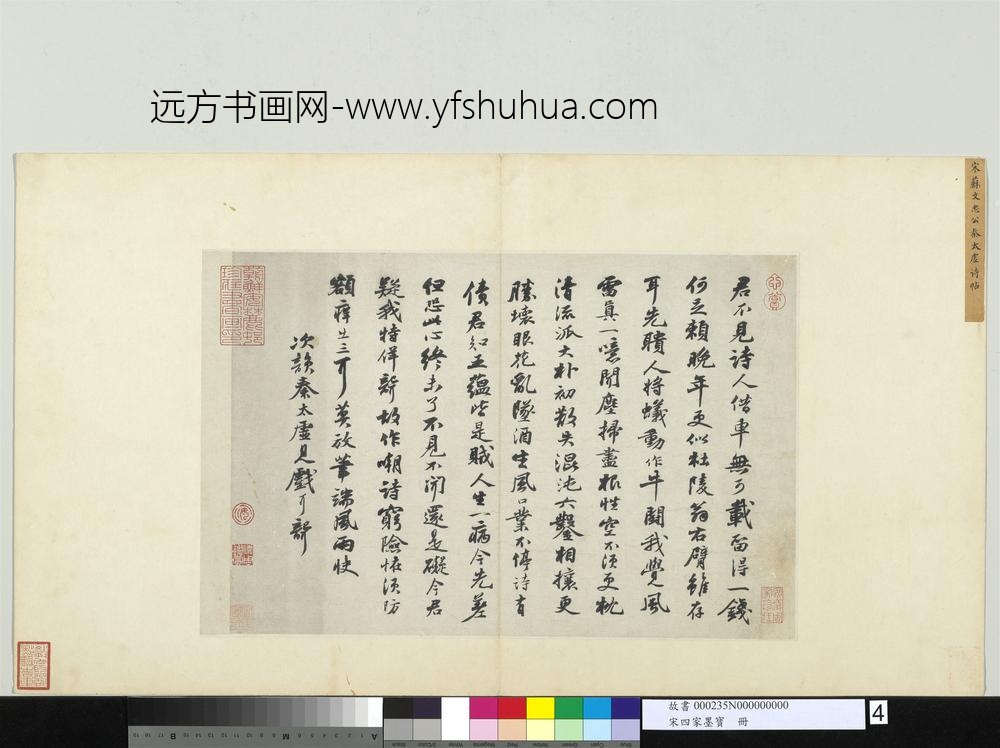 远方书画网-www.yfshuhua.com
宋蘇文忠公秦太虛诗帖
君不見詩人借車無可載留得一錢
何足賴晚年更似杜陵翁右臂雖存
耳先聵人將蟻動作牛鬪我覺風
雷真一噫聞塵掃盡根性空不須更枕
清流派大朴初散失混沌六鑿相攘更
勝壞眼花亂墜酒生風口業不停詩有
債君知五蘊皆是賊人生一病今先差
但恐此心終未了不見不聞還是礙今君
疑我特佯聾故作嘲詩窮險怪須防
額痒出三耳莫放筆端風雨快
次韻秦太虛見戲耳聾
故書 000235N000000000
宋四家墨寶 冊
4